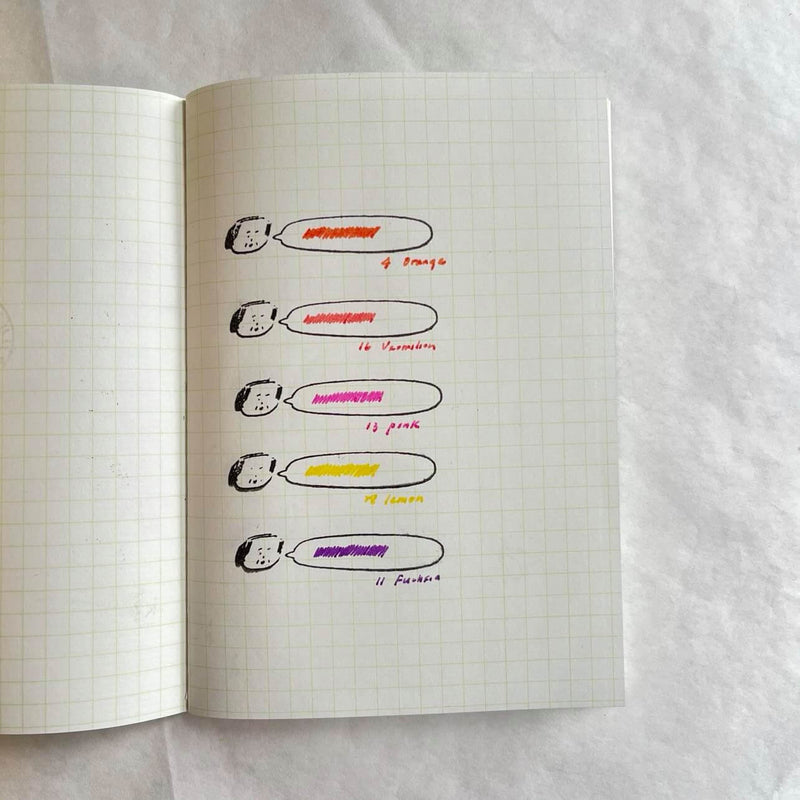 4 Orange
16 Vermilion
13 pink
lemon
11 Fuchsia